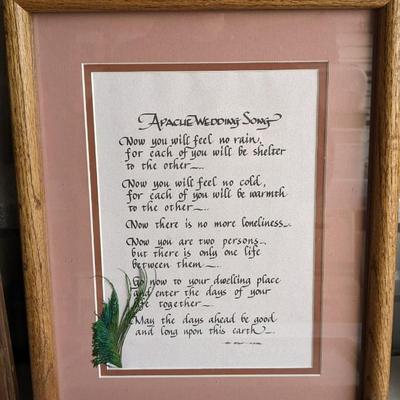 Apache Wedding Song
Now you will feel no rain,
for each of you will be shelter
to the other
Now you will feel no cold,
for each of you will be warmth
to the other
Now there is no more loneliness
Now you are two persons
but there is only one life
between them
Go now to your dwelling place
and enter the days of your
life together
May the days ahead be good
and long upon this earth